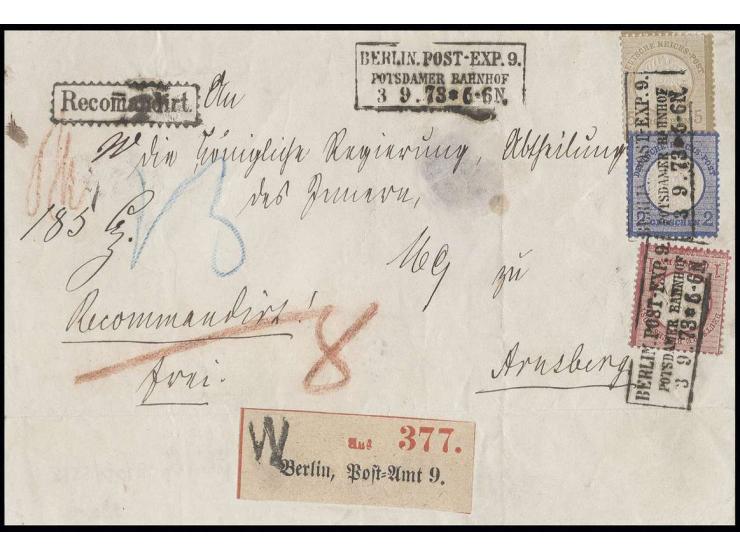 BERLIN. POST-EXP. 9.
POTSDAMER BAHNHOF
3 9. 73 * 6-6N.
Recomandirt.
An
die Königliche Regierung, Abtheilung
des Innern,
185
zu
Recommandirt!
Arnsberg
frei.
8
Aus 377.
Berlin, Post-Amt 9.
5
2 2
GROSCHEN
BERLIN. POST-EXP. 9.
POTSDAMER BAHNHOF
3 9. 73 * 6-6N.
BERLIN. POST-EXP. 9.
POTSDAMER BAHNHOF
3 9. 73 * 6-6N.
1